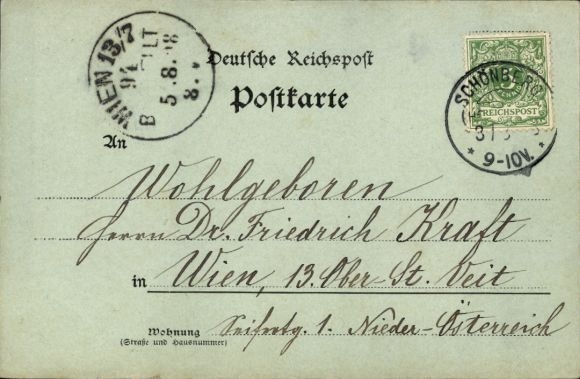 WIEN 13/7
94
B
5.8.98
8.
Deutsche Reichspost
Postkarte
SCHÖNBERG
REICHSPOST
31
9-10V.
An
Wohlgeboren
Herrn Dr. Friedrich Kraft
in Wien, 13. Ober-St. Veit
Wohnung
(Straße und Hausnummer)
1. Nieder-Österreich